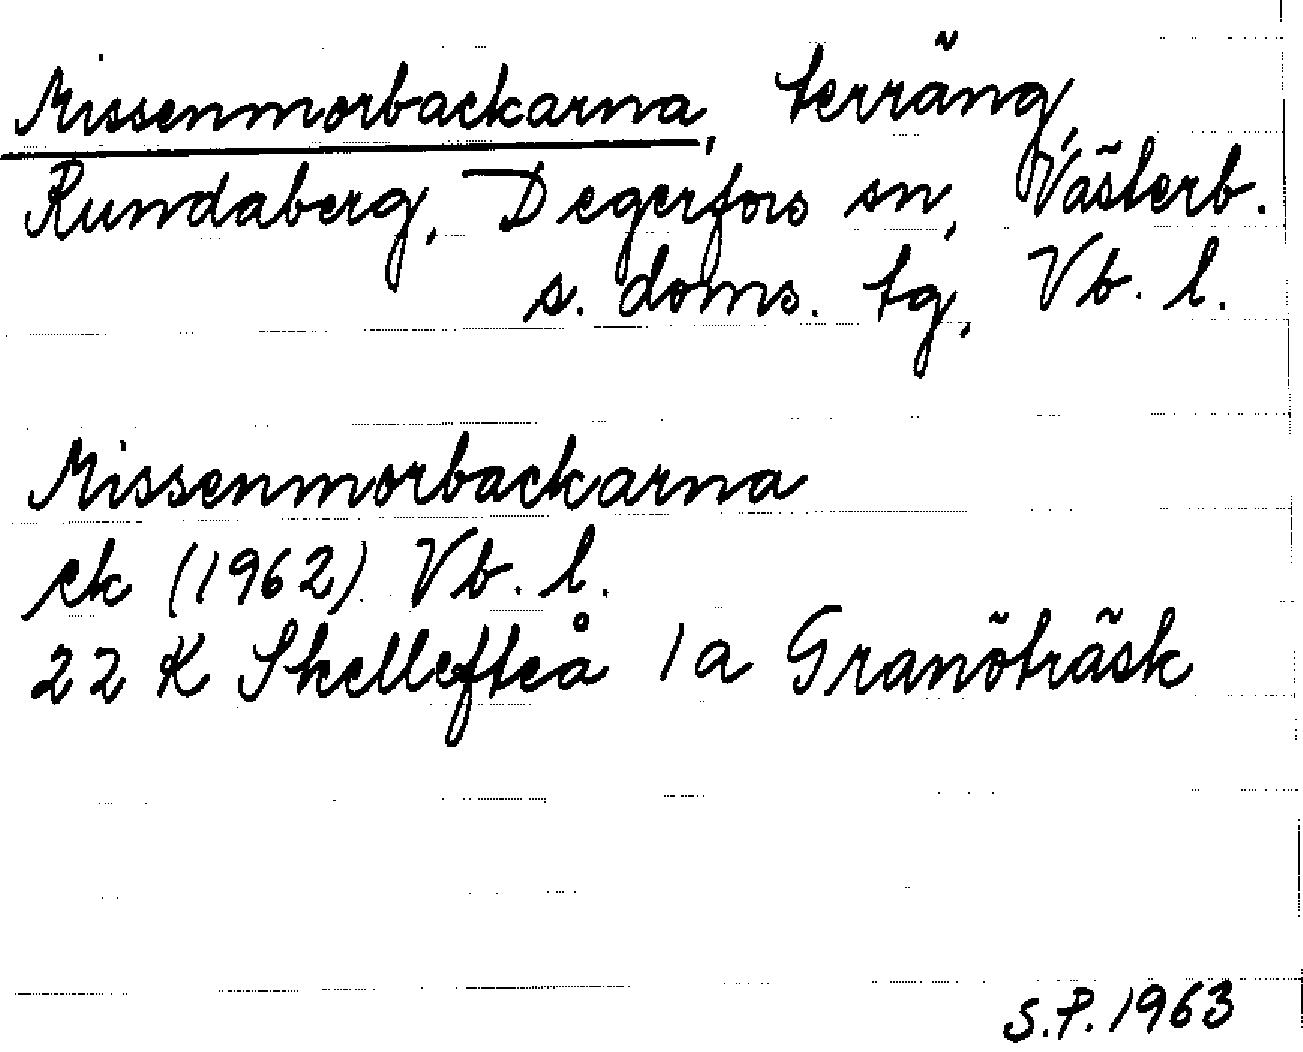 Missenmorbackarna, terräng,
Rundaberg, Degerfors sn, Västerb.
s. doms. tg, Vb. l.
Missenmorbackarna
ek (1962) Vb. l.
22 K Skellefteå 1a Granöträsk
S.P. 1963